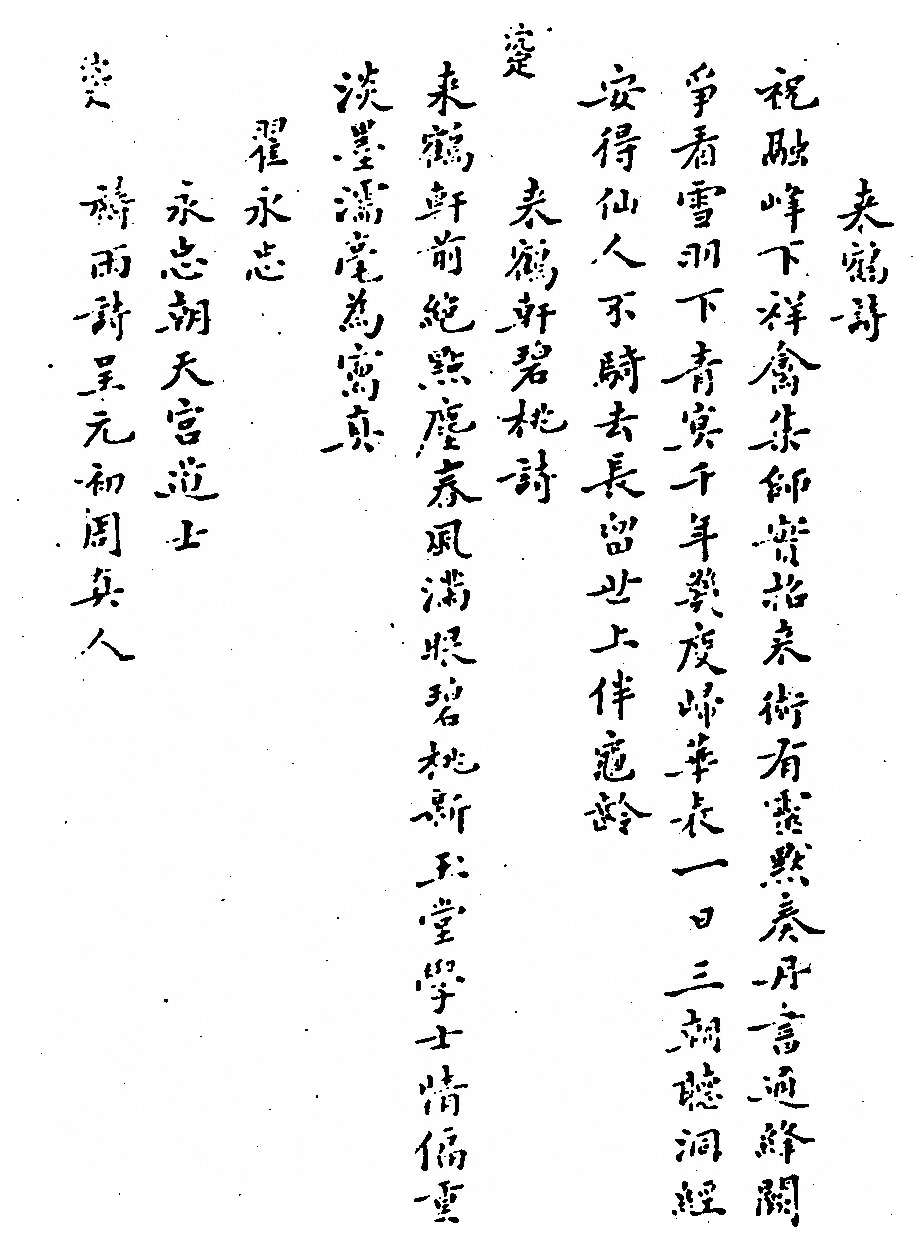 来鶴詩
祝融峰下祥禽集師實招来術有靈默奏丹書通絳闕
爭看雪羽下青冥千年幾度歸華表一日三朝聽洞經
安得仙人不騎去長留世上伴龜齡
来鶴軒碧桃詩
来鶴軒前絶點塵春風滿眼碧桃新玉堂學士情偏重
淡墨濡毫為寫真
瞿永忘
永忘朝天宫道士
禱雨詩呈元初周真人